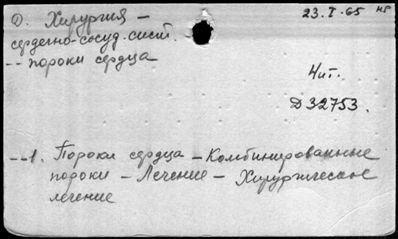 D. Хирургия –
сердечно-сосуд. сист.
-- пороки сердца
23.I.65
Чит.
D32753.
--1. Пороки сердца – Комбинированные
пороки – Лечение – Хирургическое
лечение